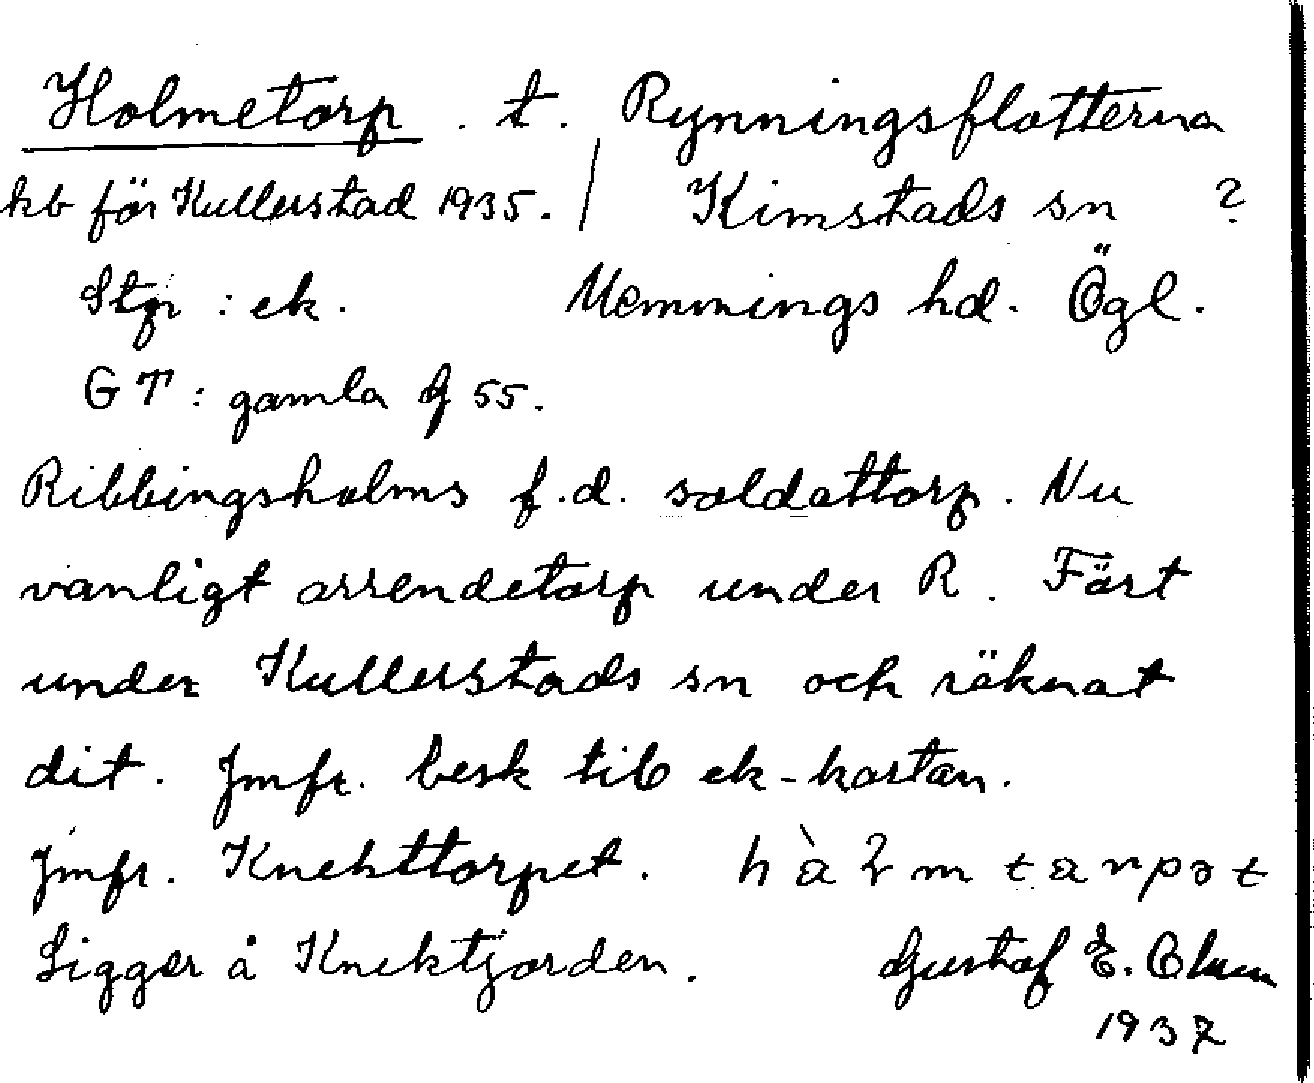 Holmetorp . t. Rynningsflatterna
kb för Kullerstad 1935. / Kimstads sn ?
Stgr : ek. Memmings hd. Ögl.
GT : gamla J 55.
Ribbingsholms f.d. soldattorp. Nu
vanligt arrendetorp under R. Fört
under Kullerstads sn och räknat
dit. Jmfr. besk till ek-kartan.
Jmfr. Knekttorpet.
Ligger å Knektjorden. Gustaf E.
1937